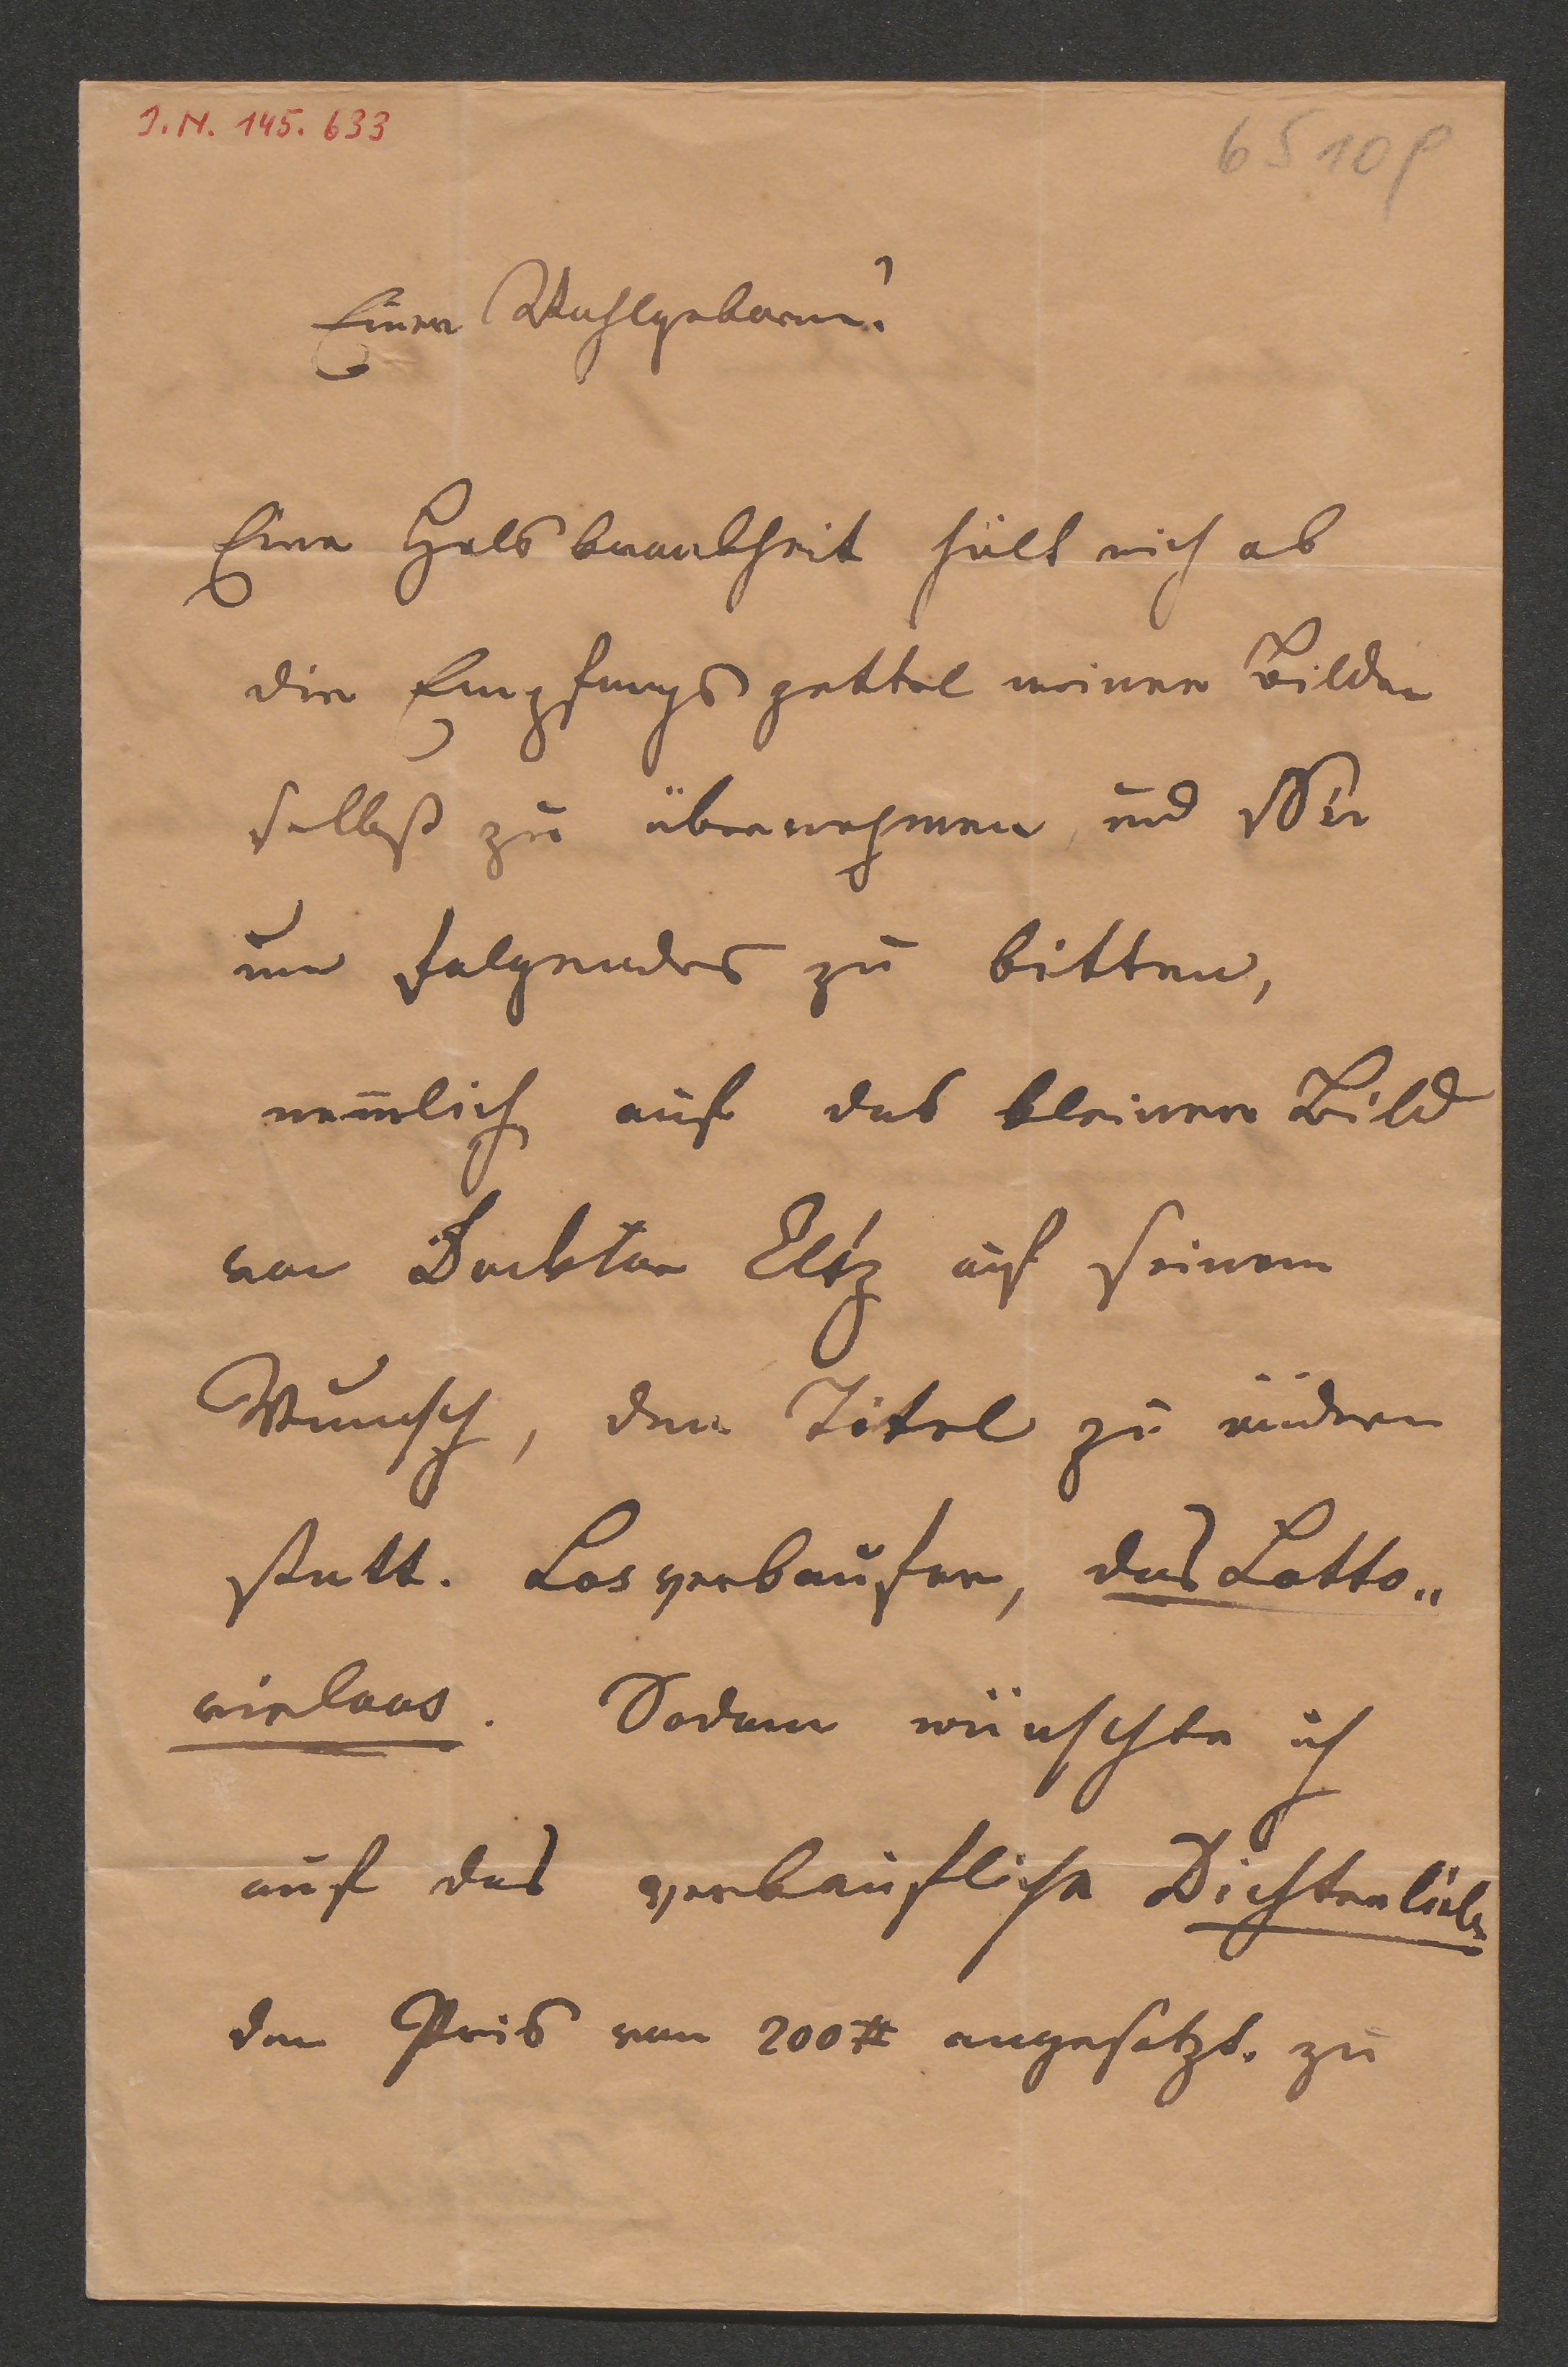 I.N. 145.633
65109
Euer Wohlgeboren!
Eine Halskrankheit hält mich ab
die Empfangszettel meiner Bilder
selbst zu übernehmen, und Sie
um folgendes zu bitten,
nemlich auf das kleinere Bild
von Docktor Eltz auf seinem
Wunsch, den Titel zu ändern
statt. Losverkaufer, das Lotto„
. Sodann wünschte ich
auf das verkaufliche Dichterliebe
den Preis von 200# angesetzt. zu